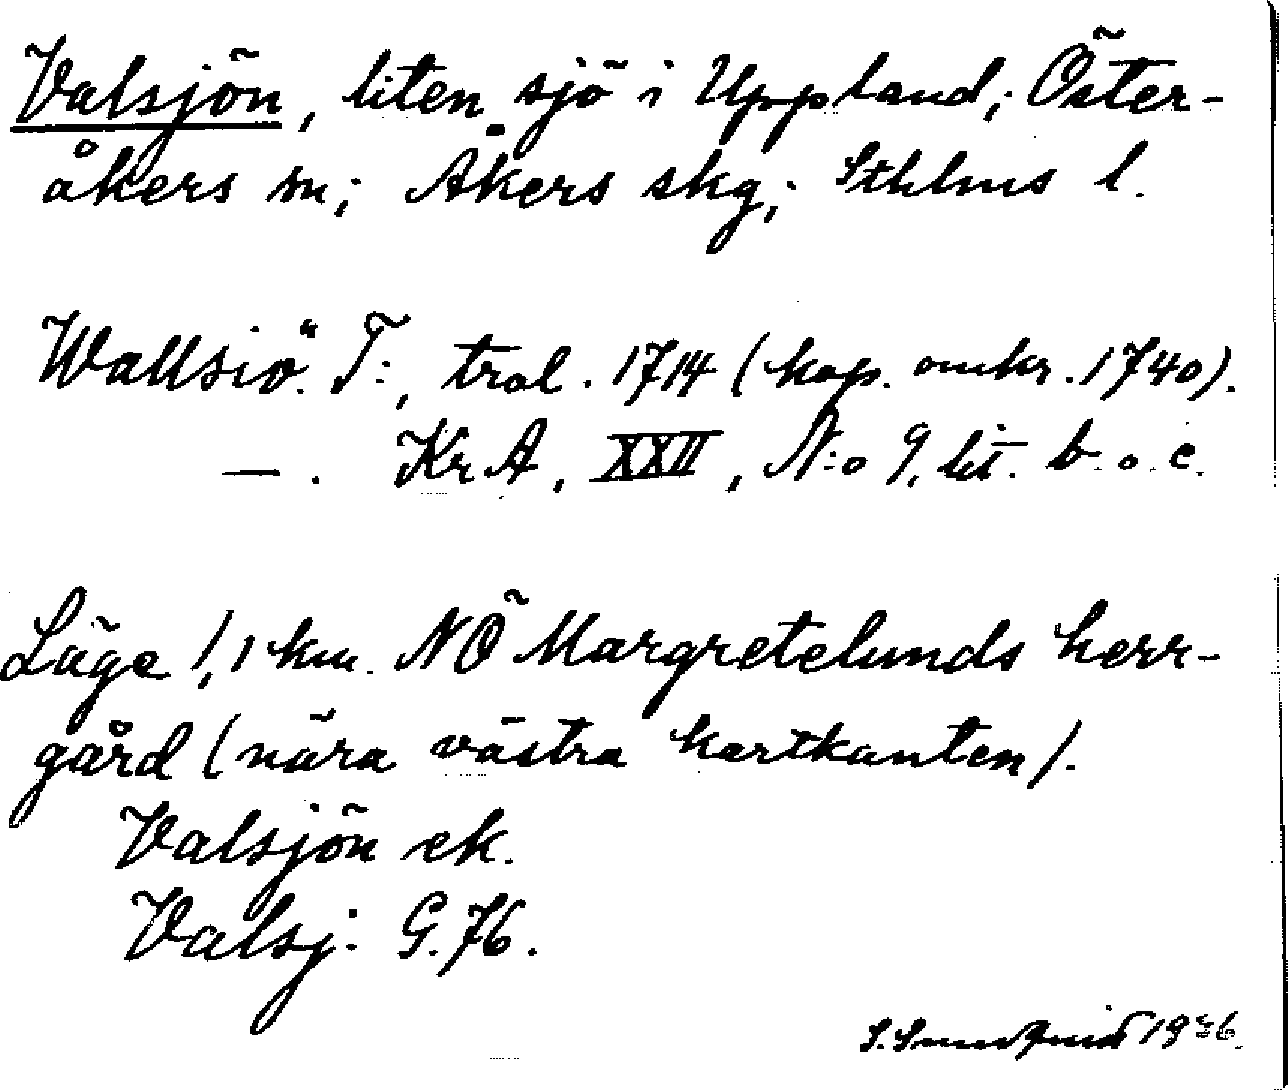 Valsjön, liten sjö i Uppland; Öster-
åkers sn; Åkers skg; Sthlms l.
Wallsiö. T:, trol. 1714 (kop. omkr. 1740).
— . KrA, XXII, N:o 9, lit. b. o. c.
Läge 1,1 km. NÖ Margretelunds herr-
gård (nära västra kartkanten).
Valsjön ek.
Valsj: G. 76.